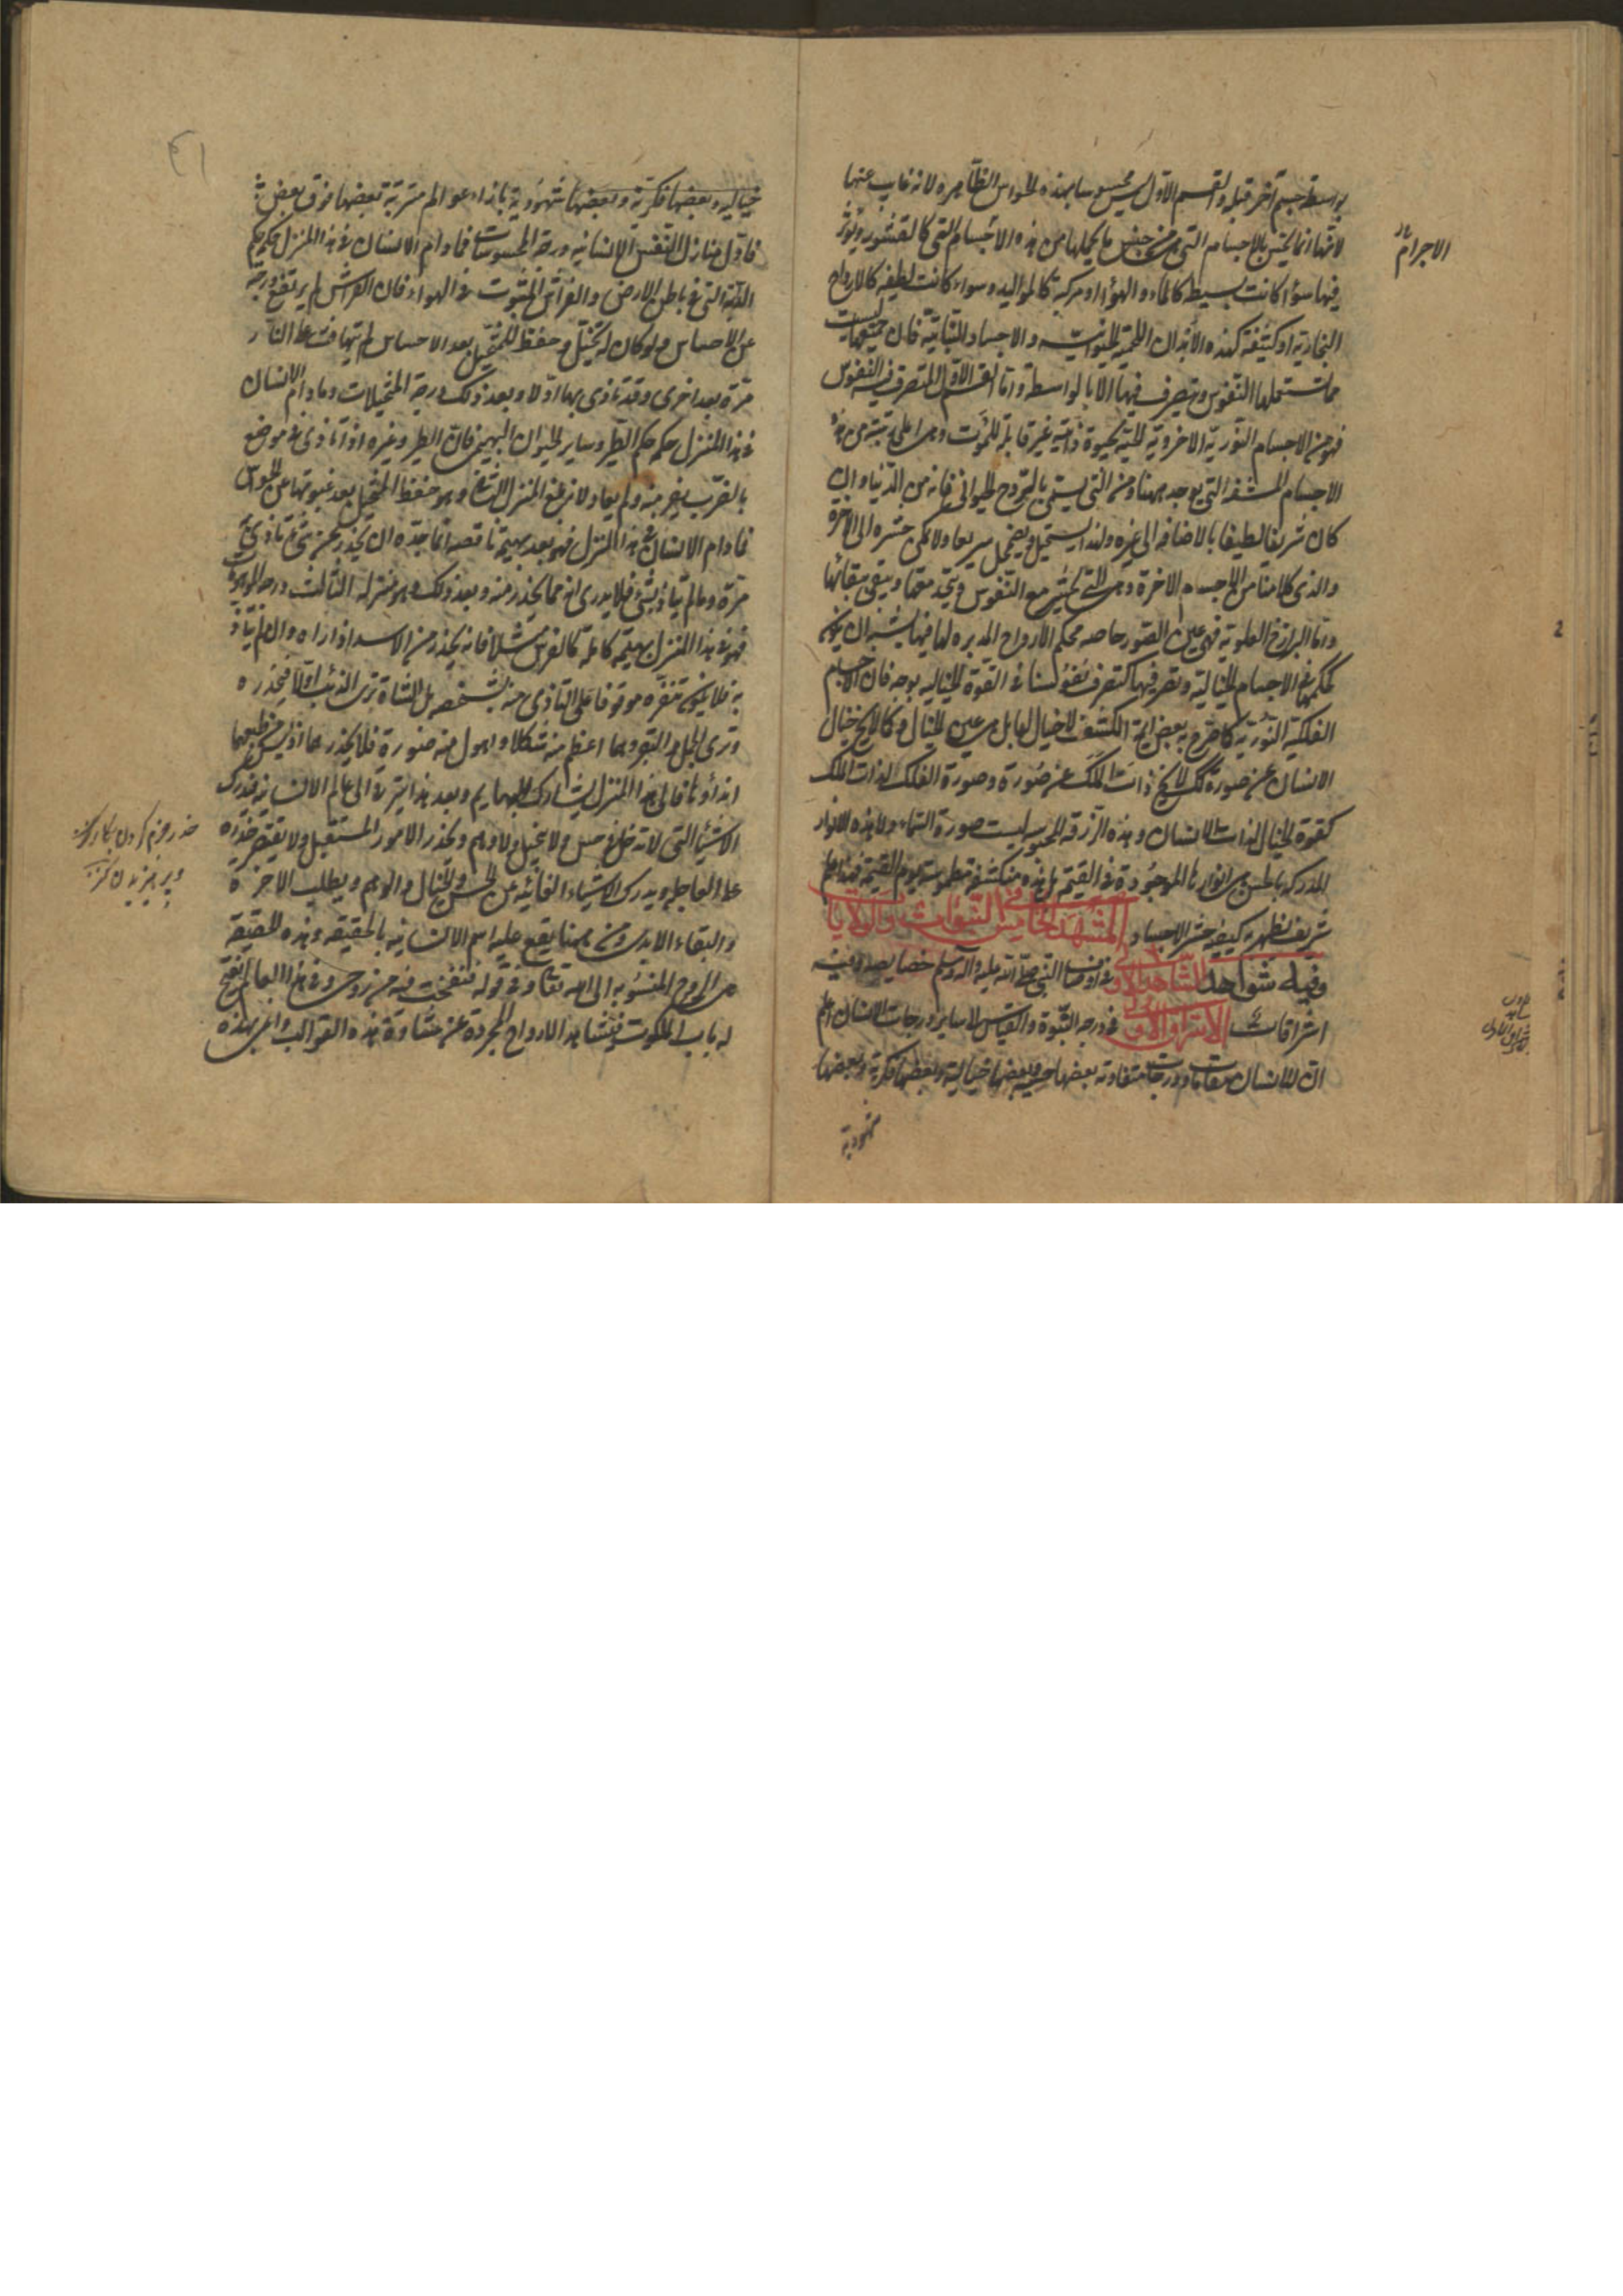 بواسطة جسم آخر قبله والقسم الاول ليس محسوسا بهذه الحواس الظاهرة لانه غايب عنها
لانها انما يحس بالاجسام التى من جنس ما يحملها من هذه الاجسام التى كالقشور ويؤثر
فيها سواء كانت بسيطة كالماء والهواء او مركبة كالمواليد وسواء كانت لطيفة كالارواح
البخارية او كثيفة كهذه الابدان اللحمية الحيوانية والاجساد النباتية فان جميعها ليست
مما تستعملها النفوس ويتصرف فيها الا بالواسطة واما القسم الاول المتصرف فيه النفوس
فهو من الاجسام النورية الاخروية الحية بحيوة ذاتية غير قابلة للموت وهى اعلى رتبة من هذه
الاجسام المشفة التى يوجد ههنا ومن التى يسمى بالروح الحيوانى فانه من الدنيا وان
كان شريفا لطيفا بالاضافة الى غيره ولهذا يستحيل ويضمحل سريعا ولا يمكن حشره الى الاخرة
والذى كلامنا من اجسام الاخرة وهى التى تحشر مع النفوس ويتحد معها ويبقى ببقائها
واما البرازخ العلوية فهى عين الصور حاصلة بحكم الارواح المدبرة لها فيها يشبه ان يكون
كحكمها فى الاجسام الخيالية وتصرفها فيها كتصرف نفوسنا فى القوة الخيالية بوجه فان الاجسام
الفلكية النورية كما صرح به بعض ائمة الكشف لا خيال لها بل هى عين الخيال وكما لا يخ خيال
الانسان عن صورة كك لا يخ ذات الملك عن صورة وصورة الفلك لذات الملك
كقوة الخيال لذات الانسان وهذه الزرقة المحسوسة ليست صورة السماء ولا هذه الانوار
المدركة بالحس هى انوارها الموجودة فى القيمة بل هذه منكشفة مطموسة يوم القيمة فهذا علم
شريف يظهر به كيفية حشر الاجساد المشهد الخامس فى النبوات والولايات
وفيه شواهد الشاهد الاول فى اوصاف النبى صلى الله عليه وآله وسلم خصايصه وفيه
اشراقات الاشراق الاول فى درجة النبوة والقياس الى ساير درجات الانسان اعلم
ان للانسان مقامات ودرجات متفاوتة بعضها حسية وبعضها خيالية وبعضها فكرية وبعضها
شهودية
الاجرام
خيالية وبعضها فكرية وبعضها شهودية بازاء عوالم مترتبة بعضها فوق بعض
فاول منازل النفس الانسانية درجة المحسوسات فما دام الانسان فى هذا المنزل حكمه حكم
الدابة التى فى باطن الارض والفراش المبثوث فى الهواء فان الفراش لم يرتفع درجته
عن الاحساس ولو كان له تخيل وحفظ للمتخيل بعد الاحساس لم يتهافت على النار
مرة بعد اخرى وقد تاذى بها اولا وبعد ذلك درجة المتخيلات وما دام الانسان
فى هذا المنزل حكمه حكم الطير وساير الحيوان البهيمى فان الطير وغيره اذا تاذى فى موضع
بالضرب يفر منه ولم يعاود لانه بلغ المنزل الثانى وهو حفظ المتخيل بعد غيبوبتها عن الحواس
فما دام الانسان فى هذا المنزل فهو بعد بهيمة ناقصة انما حده ان يحذر عن شئ تاذى به
مرة وما لم يتاذ بشئ فلا يدرى انه مما يحذر منه وبعد ذلك وهو منزله الثالث درجة الموهومات
فهو فى هذا المنزل بهيمة كاملة كالفرس مثلا فانه يحذر من الاسد اذا راه وان لم يتاذ
به فلا يكون تنفره موقوفا على التاذى منه بشخصه بل الشاة ترى الذئب اولا فيحذره
وترى الجمل والبقر وهما اعظم منه شكلا واهول منه صورة فلا يحذرهما اذ ليس من طبعهما
ايذاؤها فالى هذا المنزل يشارك البهايم وبعد هذا يترقى الى عالم الانسانية فيدرك
الاشياء التى لا تدخل فى حس ولا تخيل ولا وهم ويحذر الامور المستقبل ولا يقتصر حذره
على العاجلة ويدرك الاشياء الغائبة عن الحس والخيال والوهم ويطلب الاخرة
والبقاء الابدى ومن ههنا يقع عليه اسم الانسانية بالحقيقة وهذه الحقيقة
هى الروح المنسوبة الى الله تعالى فى قوله فنفخت فيه من روحى وفى هذا العالم يفتح
له باب الملكوت فيشاهد الارواح المجردة عن غشاوة هذه القوالب واعنى بهذه